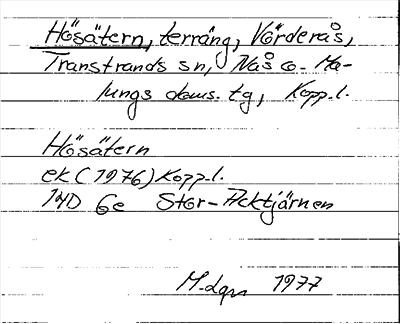 Hösätern, terräng, Vörderås,
Transtrands sn, Nås o. Ma-
lungs doms. tg, Kopp.l.
Hösätern
ek (1976) Kopp.l.
14D 6e Stor-Acktjärnen
1977